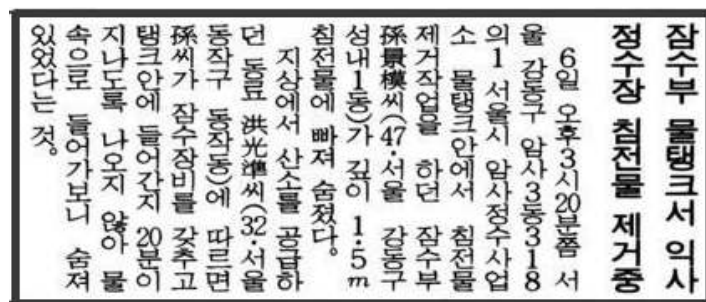 잠수부 물탱크서 익사
정수장 침전물 제거중
6일 오후3시20분쯤 서
울 강동구 암사3동318
의1 서울시 암사정수사업
소 물탱크안에서 침전물
제거작업을 하던 잠수부
孫景模씨(47·서울 강동구
성내1동)가 깊이 1·5m
침전물에 빠져 숨졌다.
지상에서 산소를 공급하
던 동료 洪光準씨(32·서울
동작구 동작동)에 따르면
孫씨가 잠수장비를 갖추고
탱크안에 들어간지 20분이
지나도록 나오지 않아 물
속으로 들어가보니 숨져
있었다는 것。